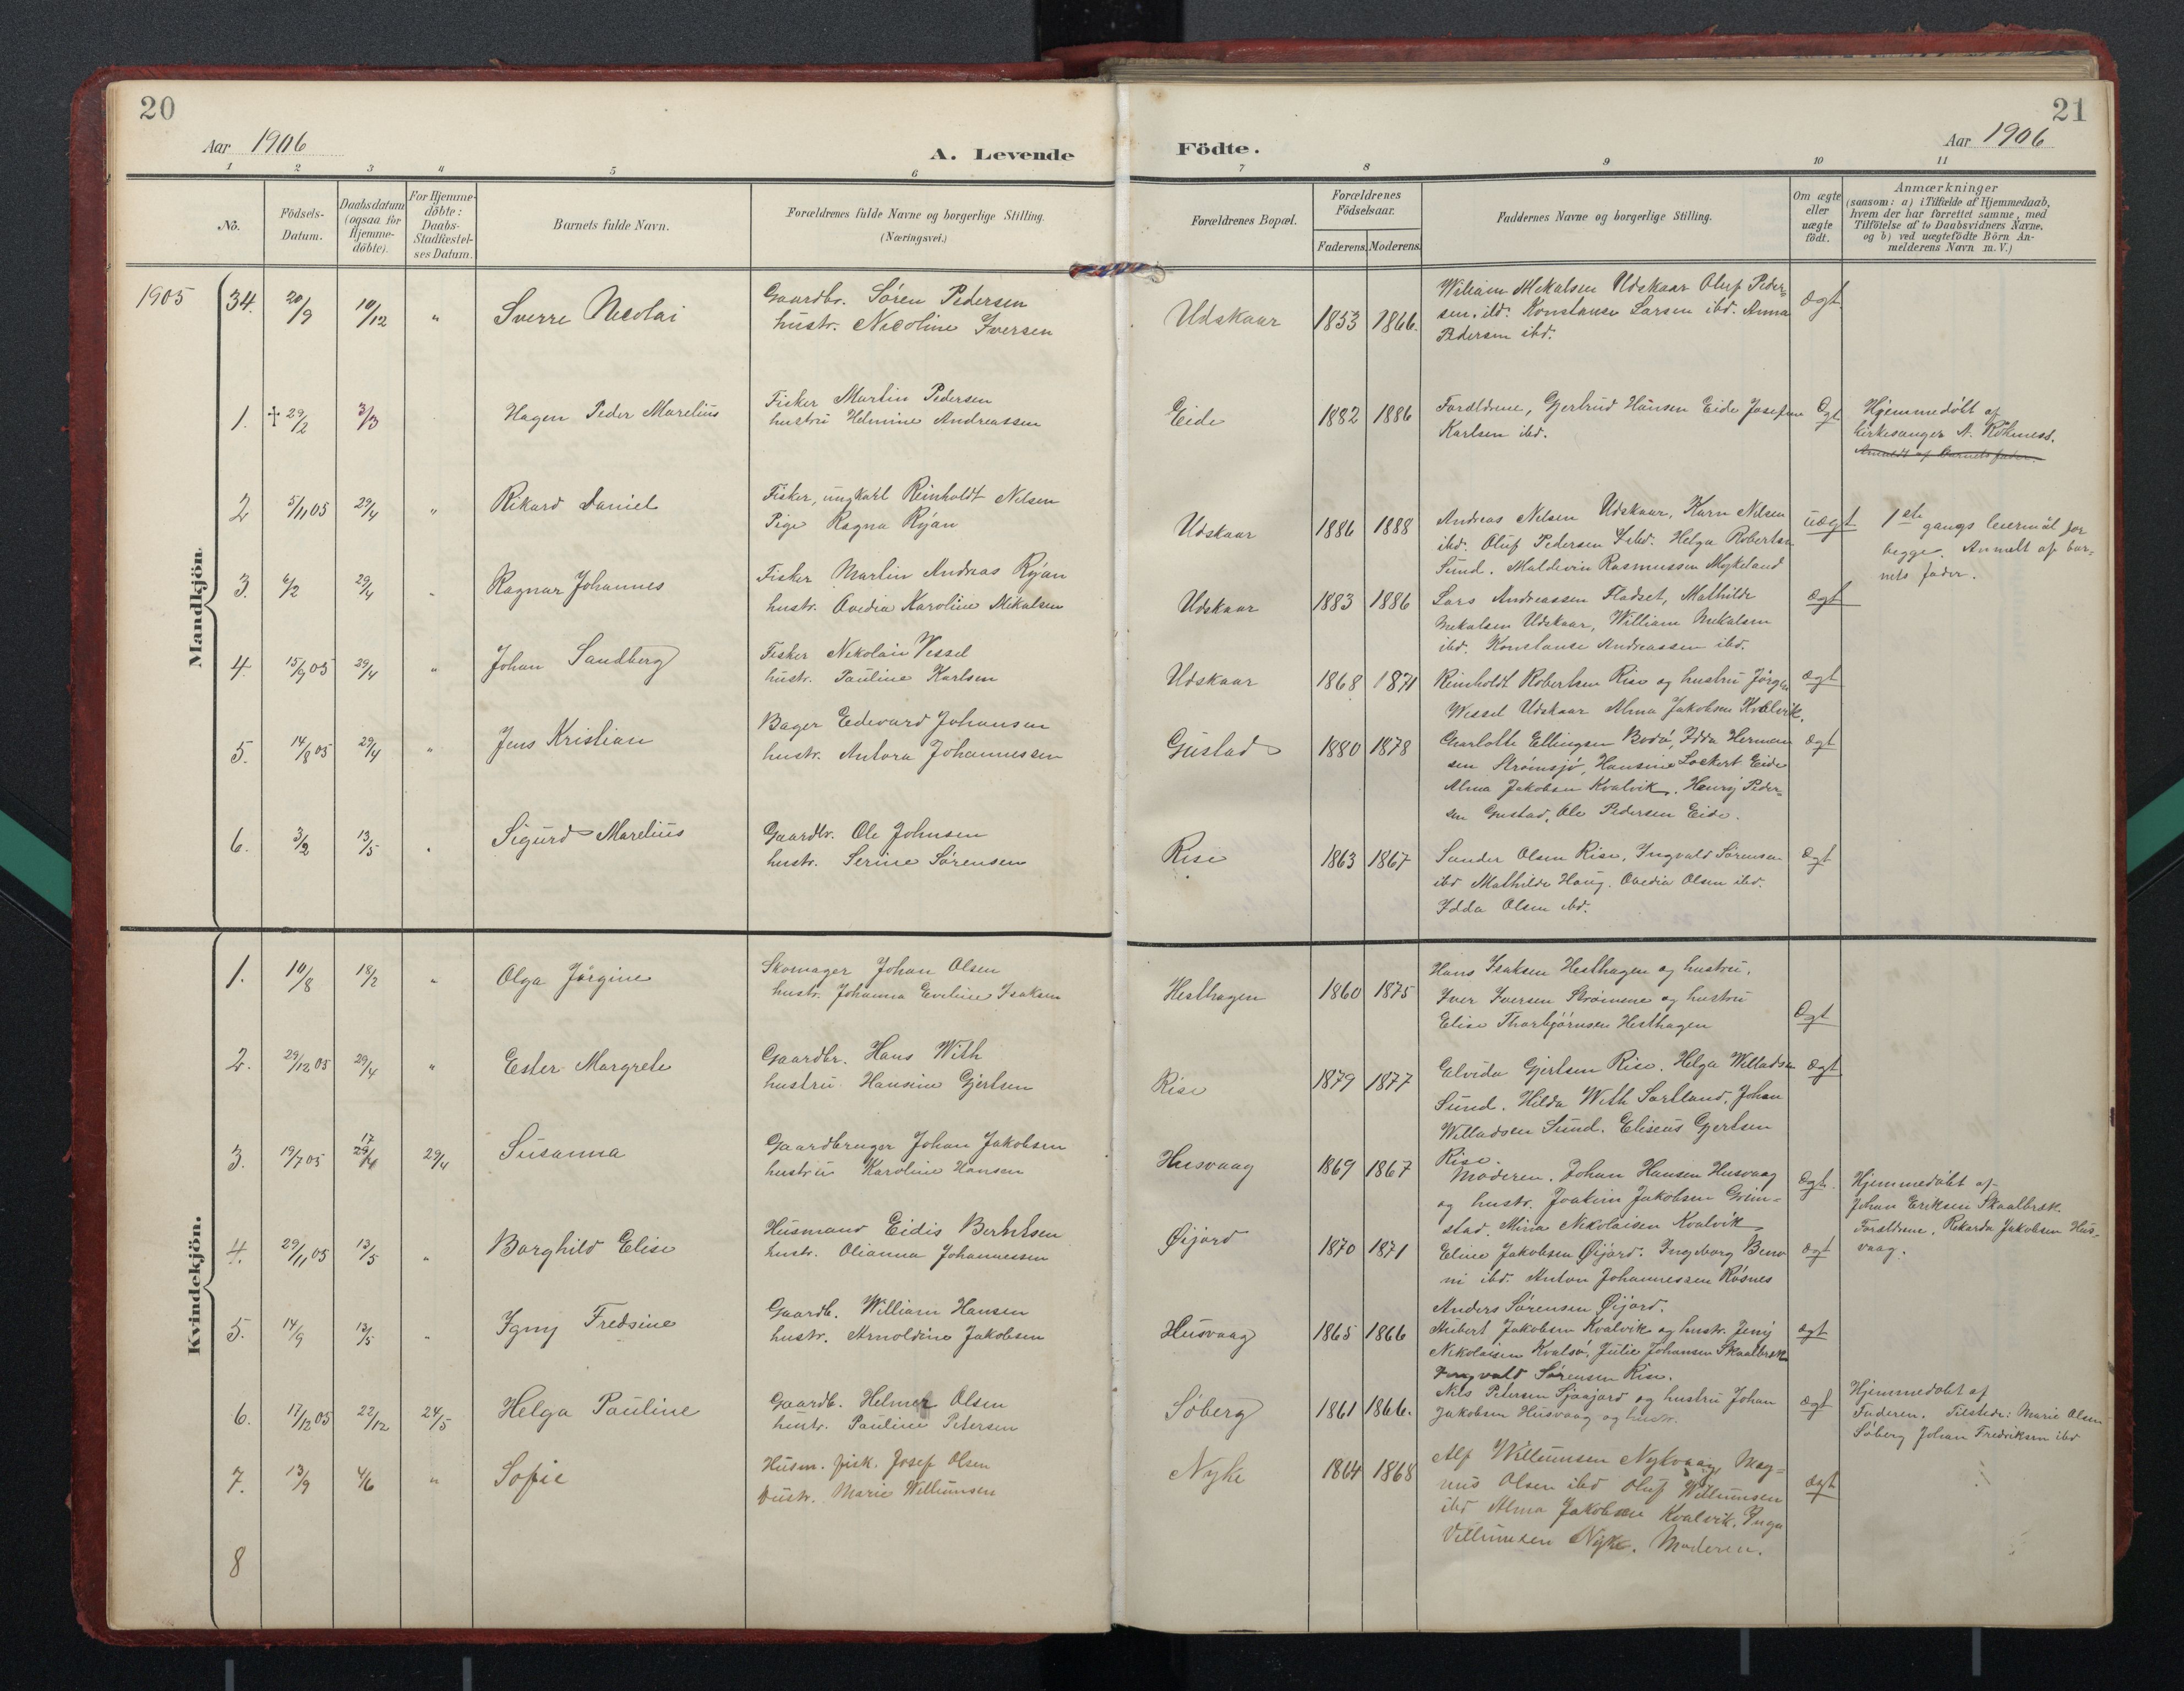 20
Aar 1906
A. Levende
1 2 3 4 5 6
No.
Födsels-
Datum.
Daabsdatum
(ogsaa for
Hjemme-
döbte).
For Hjemme-
döbte:
Daabs-
Stadfæstel-
ses Datum.
Barnets fulde Navn.
Forældrenes fulde Navne og borgerlige Stilling.
(Næringsvei.)
Mandkjön.
1905 34. 20/9 10/12 " Sverre Nicolai
Gaardbr. Sören Pedersen
hustr. Nicoline Iversen
1. † 29/2 3/3 Hagen Peder Marelius
Fisker Martin Pedersen
hustru Helmine Andreassen
2 5/11 05 29/4 " Rikard Daniel
Fisker, ungkarl Reinholdt Nilsen
Pige Ragna Ryan
3. 6/2 29/4 " Ragnar Johannes
Fisker Martin Andreas Ryan
hustr. Ovedia Karoline Mikalsen
4. 15/9 05 29/4 " Johan Sandberg
Fisker Nikolai Wessel
hustr. Pauline Karlsen
5. 14/8 05 29/4 " Jens Kristian
Bager Edevard Johansen
hustr. Antora Johannessen
6. 3/2 13/5 " Sigurd Marelius
Gaardbr. Ole Johnsen
hustr. Serine Sörensen
Kvindekjön.
1. 10/8 18/2 " Olga Jörgine
Skomager Johan Olsen
hustr. Johanna Eveline Isaksen
2. 29/12 05 29/4 " Ester Margrete
Gaardbr. Hans With
hustru Hansine Gjertsen
3. 19/7 05 17 29/4 29/4 Susanna
Gaardbruger Johan Jakobsen
hustru Karoline Hansen
4. 29/11 05 13/5 " Borghild Elise
Husmand Eidis Berntsen
hustr. Olianna Johannessen
5. 14/9 13/5 " Igny Fredsine
Gaardb. William Hansen
hustr. Arnoldine Jakobsen
6. 17/12 05 22/12 24/5 Helga Pauline
Gaardb. Helmer Olsen
hustr. Pauline Petersen
7. 13/9 4/6 " Sofie
Husm. fisk. Josef Olsen
hustr. Marie Willumsen
8
21
Aar 1906
Födte.
7 8 9 10 11
Forældrenes Bopæl.
Forældrenes
Födselsaar.
Faderens. Moderens.
Faddernes Navne og borgerlige Stilling.
Om ægte
eller
uægte
födt.
Anmærkninger
(saasom: a) i Tilfælde af Hjemmedaab,
hvem der har forrettet samme, med
Tilföielse af to Daabsvidners Navne,
og b) ved uægtefödte Börn An-
melderens Navn m. V.)
Udskaar 1853 1866.
William Mekalsen Udskaar Oluf Peder-
sen. ibd. Konstanse Larsen ibd. Anna
Pedersen ibd.
Ægt
Eide 1882 1886
Forældrene, Gjertrud Hansen Eide Josefine
Karlsen ibd.
Ægt
Hjemmedöbt af
kirkesanger A. Röhness.
Anmeldt af barnets fader.
Udskaar 1886 1888
Andreas Nilsen Udskaar, Karn Nilsen
ibd. Oluf Pedersen ibd. Helga Robertsen
Sund. Maldevin Rasmussen Mykeland
uægt
1ste gangs leiermål for
begge. Anmelt af bar-
nets fader.
Udskaar 1883 1886
Lars Andreassen Fladset, Mathilde
Mekalsen Udskaar, William Mekalsen
ibd. Konstanse Andreassen ibd.
ægt
Udskaar 1868 1871
Reinholdt Robertsen Rise og hustru Jörgen
Wessel Udskaar Alma Jakobsen Kvalvik.
ægt
Gustad 1880 1878
Charlotte Ellingsen Bodö, Idda Herman
sen Strömsjö, Hansine Lockert Eide
Alma Jakobsen Kvalvik. Henry Peder-
sen Gustad, Ole Pedersen Eide.
ægt
Rise 1863 1867
Sander Olsen Rise, Ingvald Sörensen
ibd Mathilde Haug. Ovedia Olsen ibd.
Idda Olsen ibd.
Ægt
Hesthagen 1860 1875
Hans Isaksen Hesthagen og hustru.
Iver Iversen Strömene og hustru
Elise Thorbjörnsen Hesthagen
Ægt
Rise 1879 1877
Elvida Gjertsen Rise. Helga Willadsen
Sund. Hilda With Sortland. Johan
Willadsen Sund. Eliseus Gjertsen
Rise.
ægt
Husvaag 1869 1867
Moderen. Johan Hansen Husvaag
og hustr. Joakim Jakobsen Grim-
stad. Mina Nikolaisen Kvalvik
Ægt.
Hjemmedöbt af
Johan Eriksen Skaalbræk.
Forældrene, Rikarda Jakobsen Hus-
vaag.
Öijord 1870 1871
Eline Jakobsen Öijord. Ingeborg Beno
ni ibd. Anton Johannessen Rösnes
Anders Sörensen Öijord.
ægt
Husvaag 1865 1866
Hubert Jakobsen Kvalvik og hustr. Jeny
Nikolaisen Kvalsö, Julie Johansen Skaalbræk
Ingvald Sörensen Rise.
ægt
Söberg 1861 1866.
Nils Petersen Sjaajord og hustru Johan
Jakobsen Husvaag og hustr.
ægt
Hjemmedöbt af
Faderen. Tilstede: Marie Olsen
Söberg Johan Fredriksen ibd
Nyke 1864 1868
Alf Willumsen Nykvaag, Mag-
nus Olsen ibd Oluf Willumsen
ibd Alma Jakobsen Kvalvik. Inga
Villumsen Nyke. Moderen.
ægt